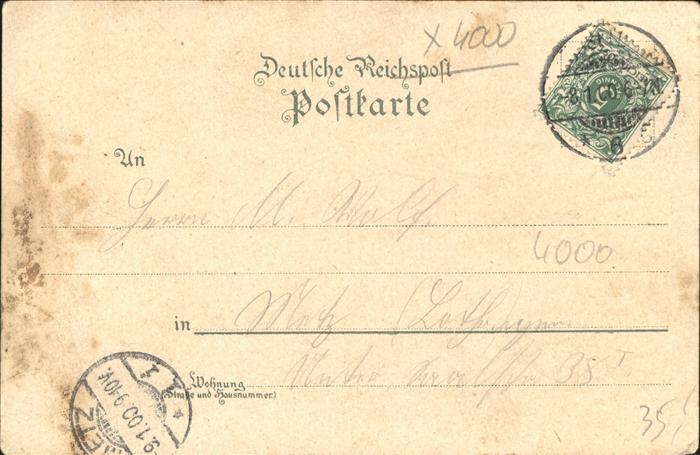 x 4000
Deutsche Reichspost
Postkarte
8.1.00.6-7N
* 6 c
An
Herrn M. Wolf.
4000
in Metz (Lothringen
Wohnung
35 I
(Straße und Hausnummer.)
METZ
9.1.00.9-10V.
* 1 I
35,